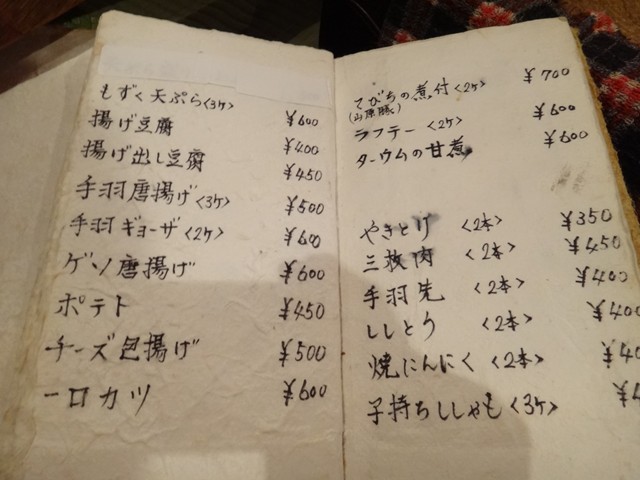 もずく天ぷら<3ケ> ¥600
揚げ豆腐 ¥400
揚げ出し豆腐 ¥450
手羽唐揚げ<3ケ> ¥500
手羽ギョーザ<2ケ> ¥600
ゲソ唐揚げ ¥600
ポテト ¥450
チーズ包揚げ ¥500
一口カツ ¥600
てびちの煮付<2ケ> ¥700
(山原豚)
ラフテー <2ケ> ¥600
ターウムの甘煮 ¥600
やきとり <2本> ¥350
三枚肉 <2本> ¥450
手羽先 <2本> ¥400
ししとう <2本> ¥400
焼にんにく <2本>
子持ちししゃも<3ケ>